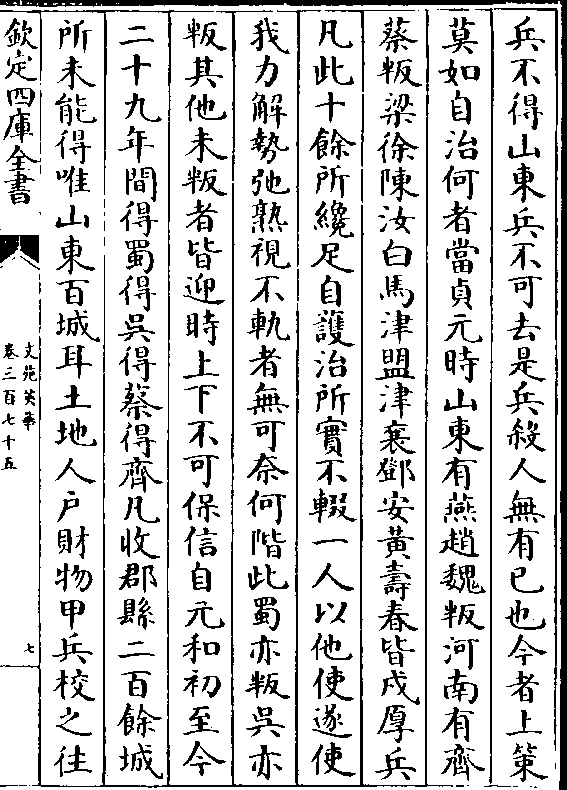 兵不得山東兵不可去是兵殺人無有已也今者上策
莫如自治何者當貞元時山東有燕趙魏叛河南有齊
蔡叛梁徐陳汝白馬津盟津襄鄧安黃壽春皆戍厚兵
凡此十餘所纔足自護治所實不輟一人以他使遂使
我力解勢弛熟視不軌者無可奈何階此蜀亦叛吳亦
叛其他未叛者皆迎時上下不可保信自元和初至今
二十九年間得蜀得吳得蔡得齊凡收郡縣二百餘城
所未能得唯山東百城耳土地人戶財物甲兵校之往
欽定四庫全書
文苑英華
卷三百七十五
七